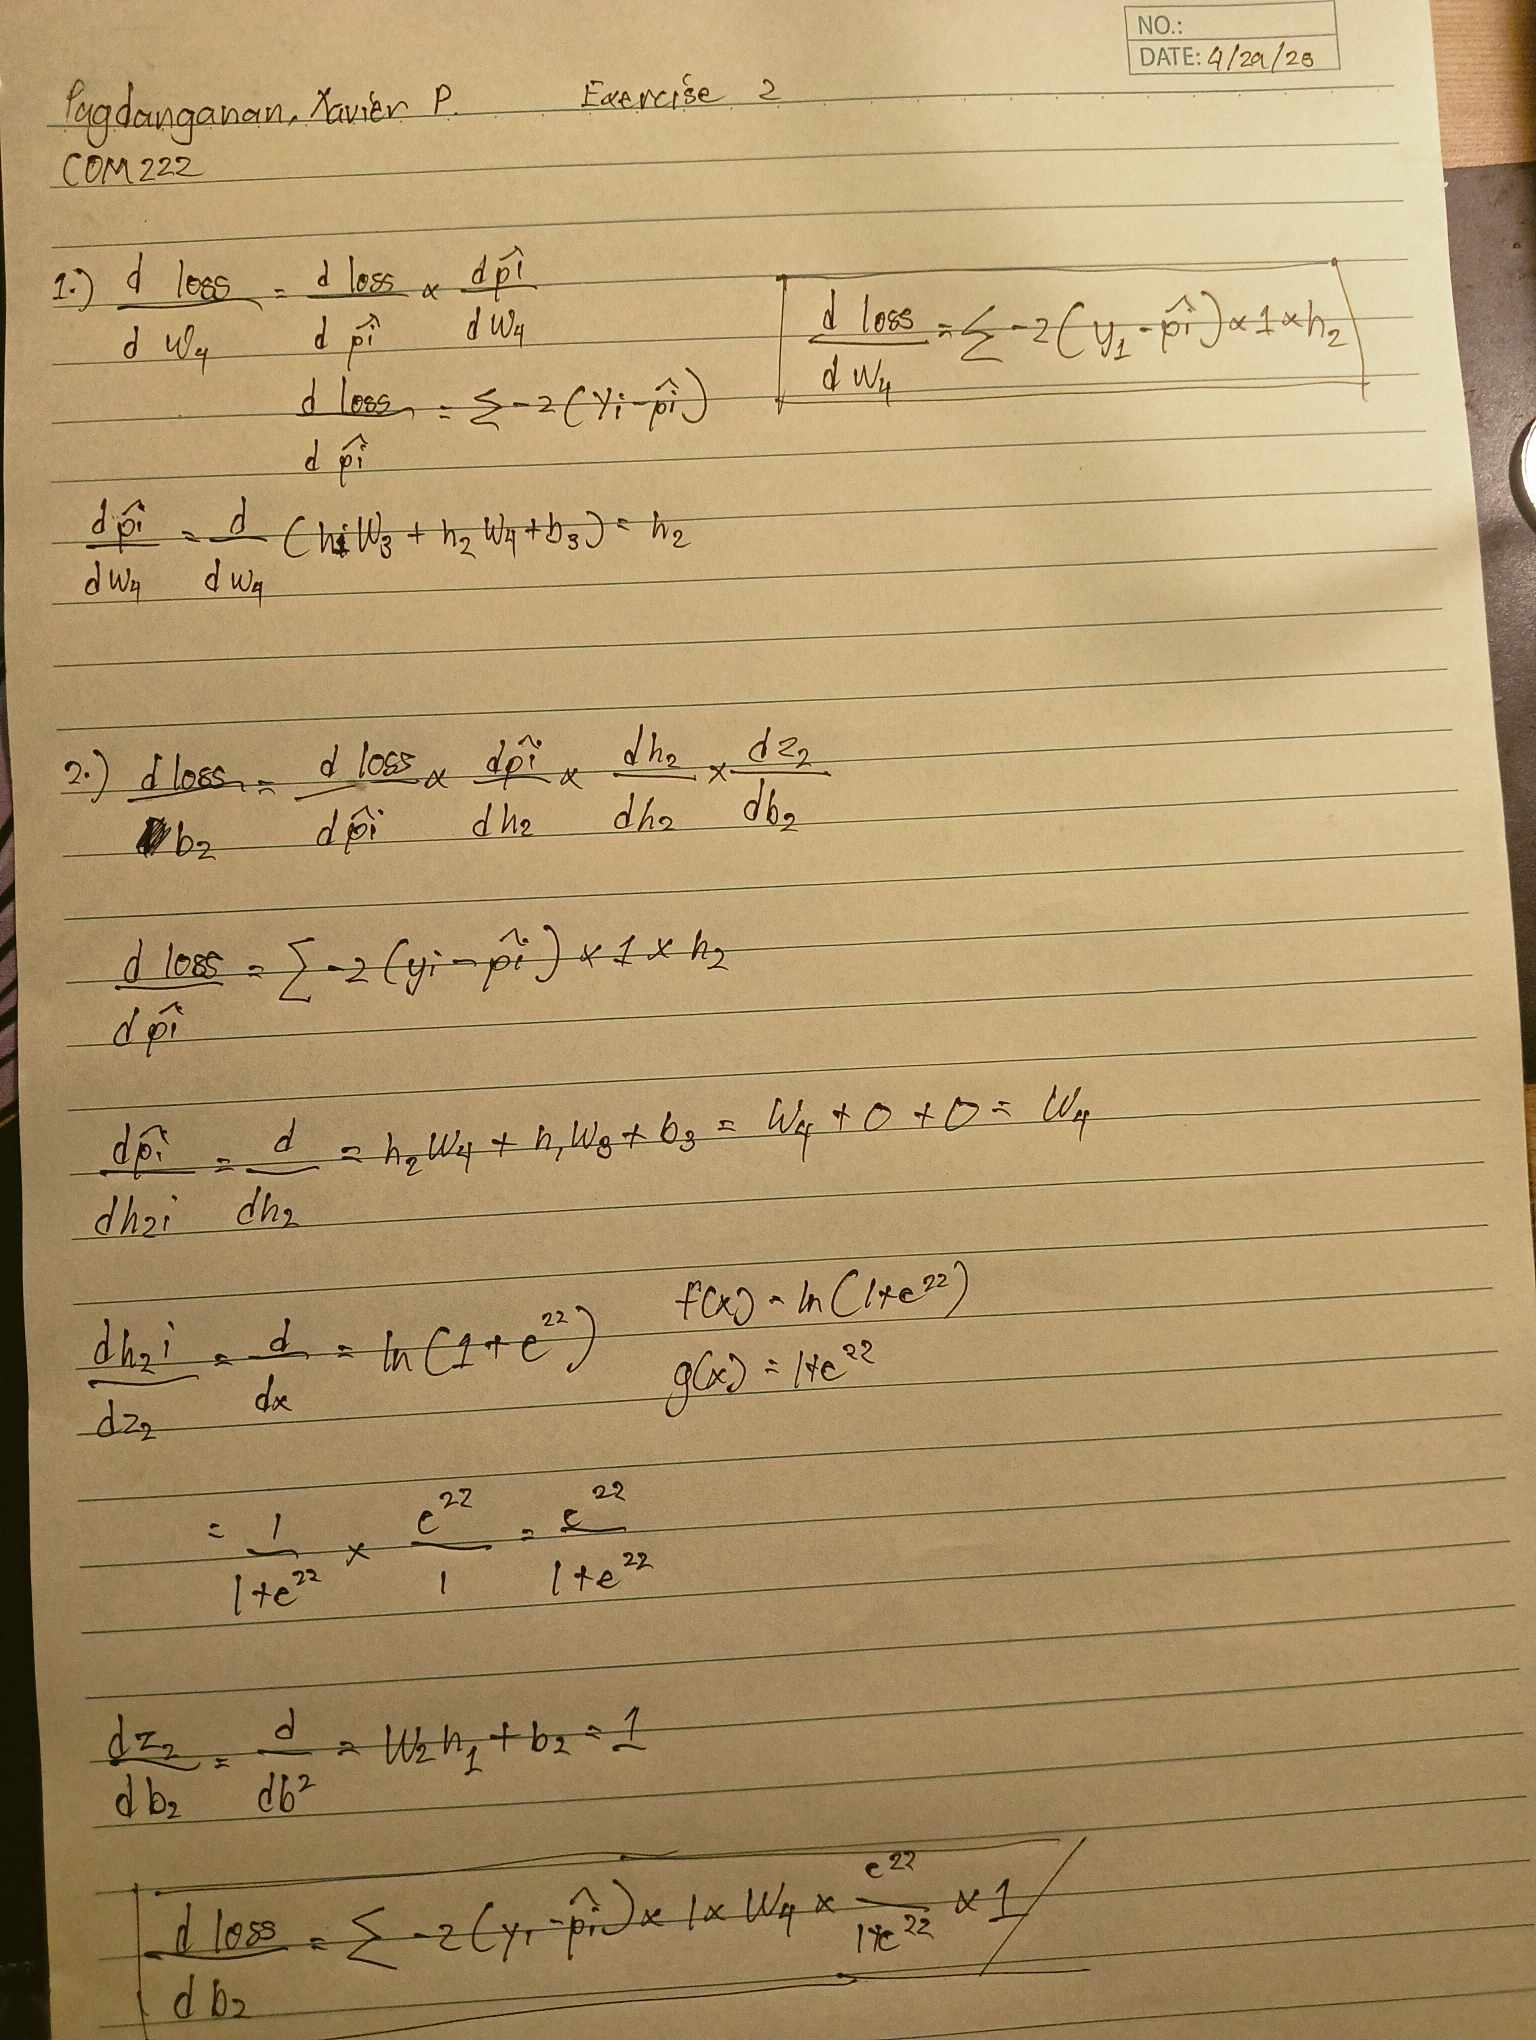 NO.:
DATE: 4/29/25
Pagdanganan, Xavier P. Exercise 2
COM222
1.) d loss / d W4 = d loss / d p̂i × d p̂i / d W4
d loss / d W4 = Σ -2(y1 - p̂i) × 1 × h2
d loss / d p̂i = Σ -2(yi - p̂i)
d p̂i / d W4 = d / d W4 (h1 W3 + h2 W4 + b3) = h2
2.) d loss / b2 = d loss / d p̂i × d p̂i / d h2 × d h2 / d h2 × d z2 / d b2
d loss / d p̂i = Σ -2(yi - p̂i) × 1 × h2
d p̂i / d h2i = d / d h2 = h2 W4 + h1 W3 + b3 = W4 + 0 + 0 = W4
d h2i / d z2 = d / dx = ln(1 + e^z2) f(x) = ln(1+e^z2)
g(x) = 1+e^z2
= 1 / 1+e^z2 × e^z2 / 1 = e^z2 / 1+e^z2
d z2 / d b2 = d / d b² = W2 h1 + b2 = 1
d loss / d b2 = Σ -2(yi - p̂i) × 1 × W4 × e^z2 / 1+e^z2 × 1